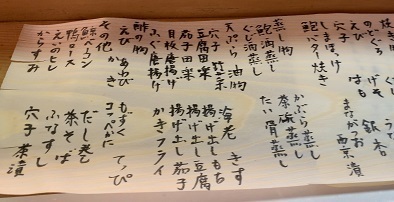 のどぐろ げそ 銀杏
えび いか はも まながつお西京漬
穴子
しまほっけ
鮑バター焼き
蒸し物 かぶら蒸し
鮑酒蒸し 茶碗蒸し
ぐじ酒蒸し たい骨蒸し
天ぷら 油物
穴子 野菜 海老 きす
豆腐田楽 揚げ出しもち
茄子田楽 揚げ出し豆腐
貝柱唐揚げ 揚げ出し茄子
ふぐ唐揚げ かきフライ
酢の物
えび あわび もずく てっぴ
その他 かき コノワタ
鯨ベーコン だし巻
鴨ロース 茶そば
えいのヒレ ふなずし
からすみ 穴子茶漬